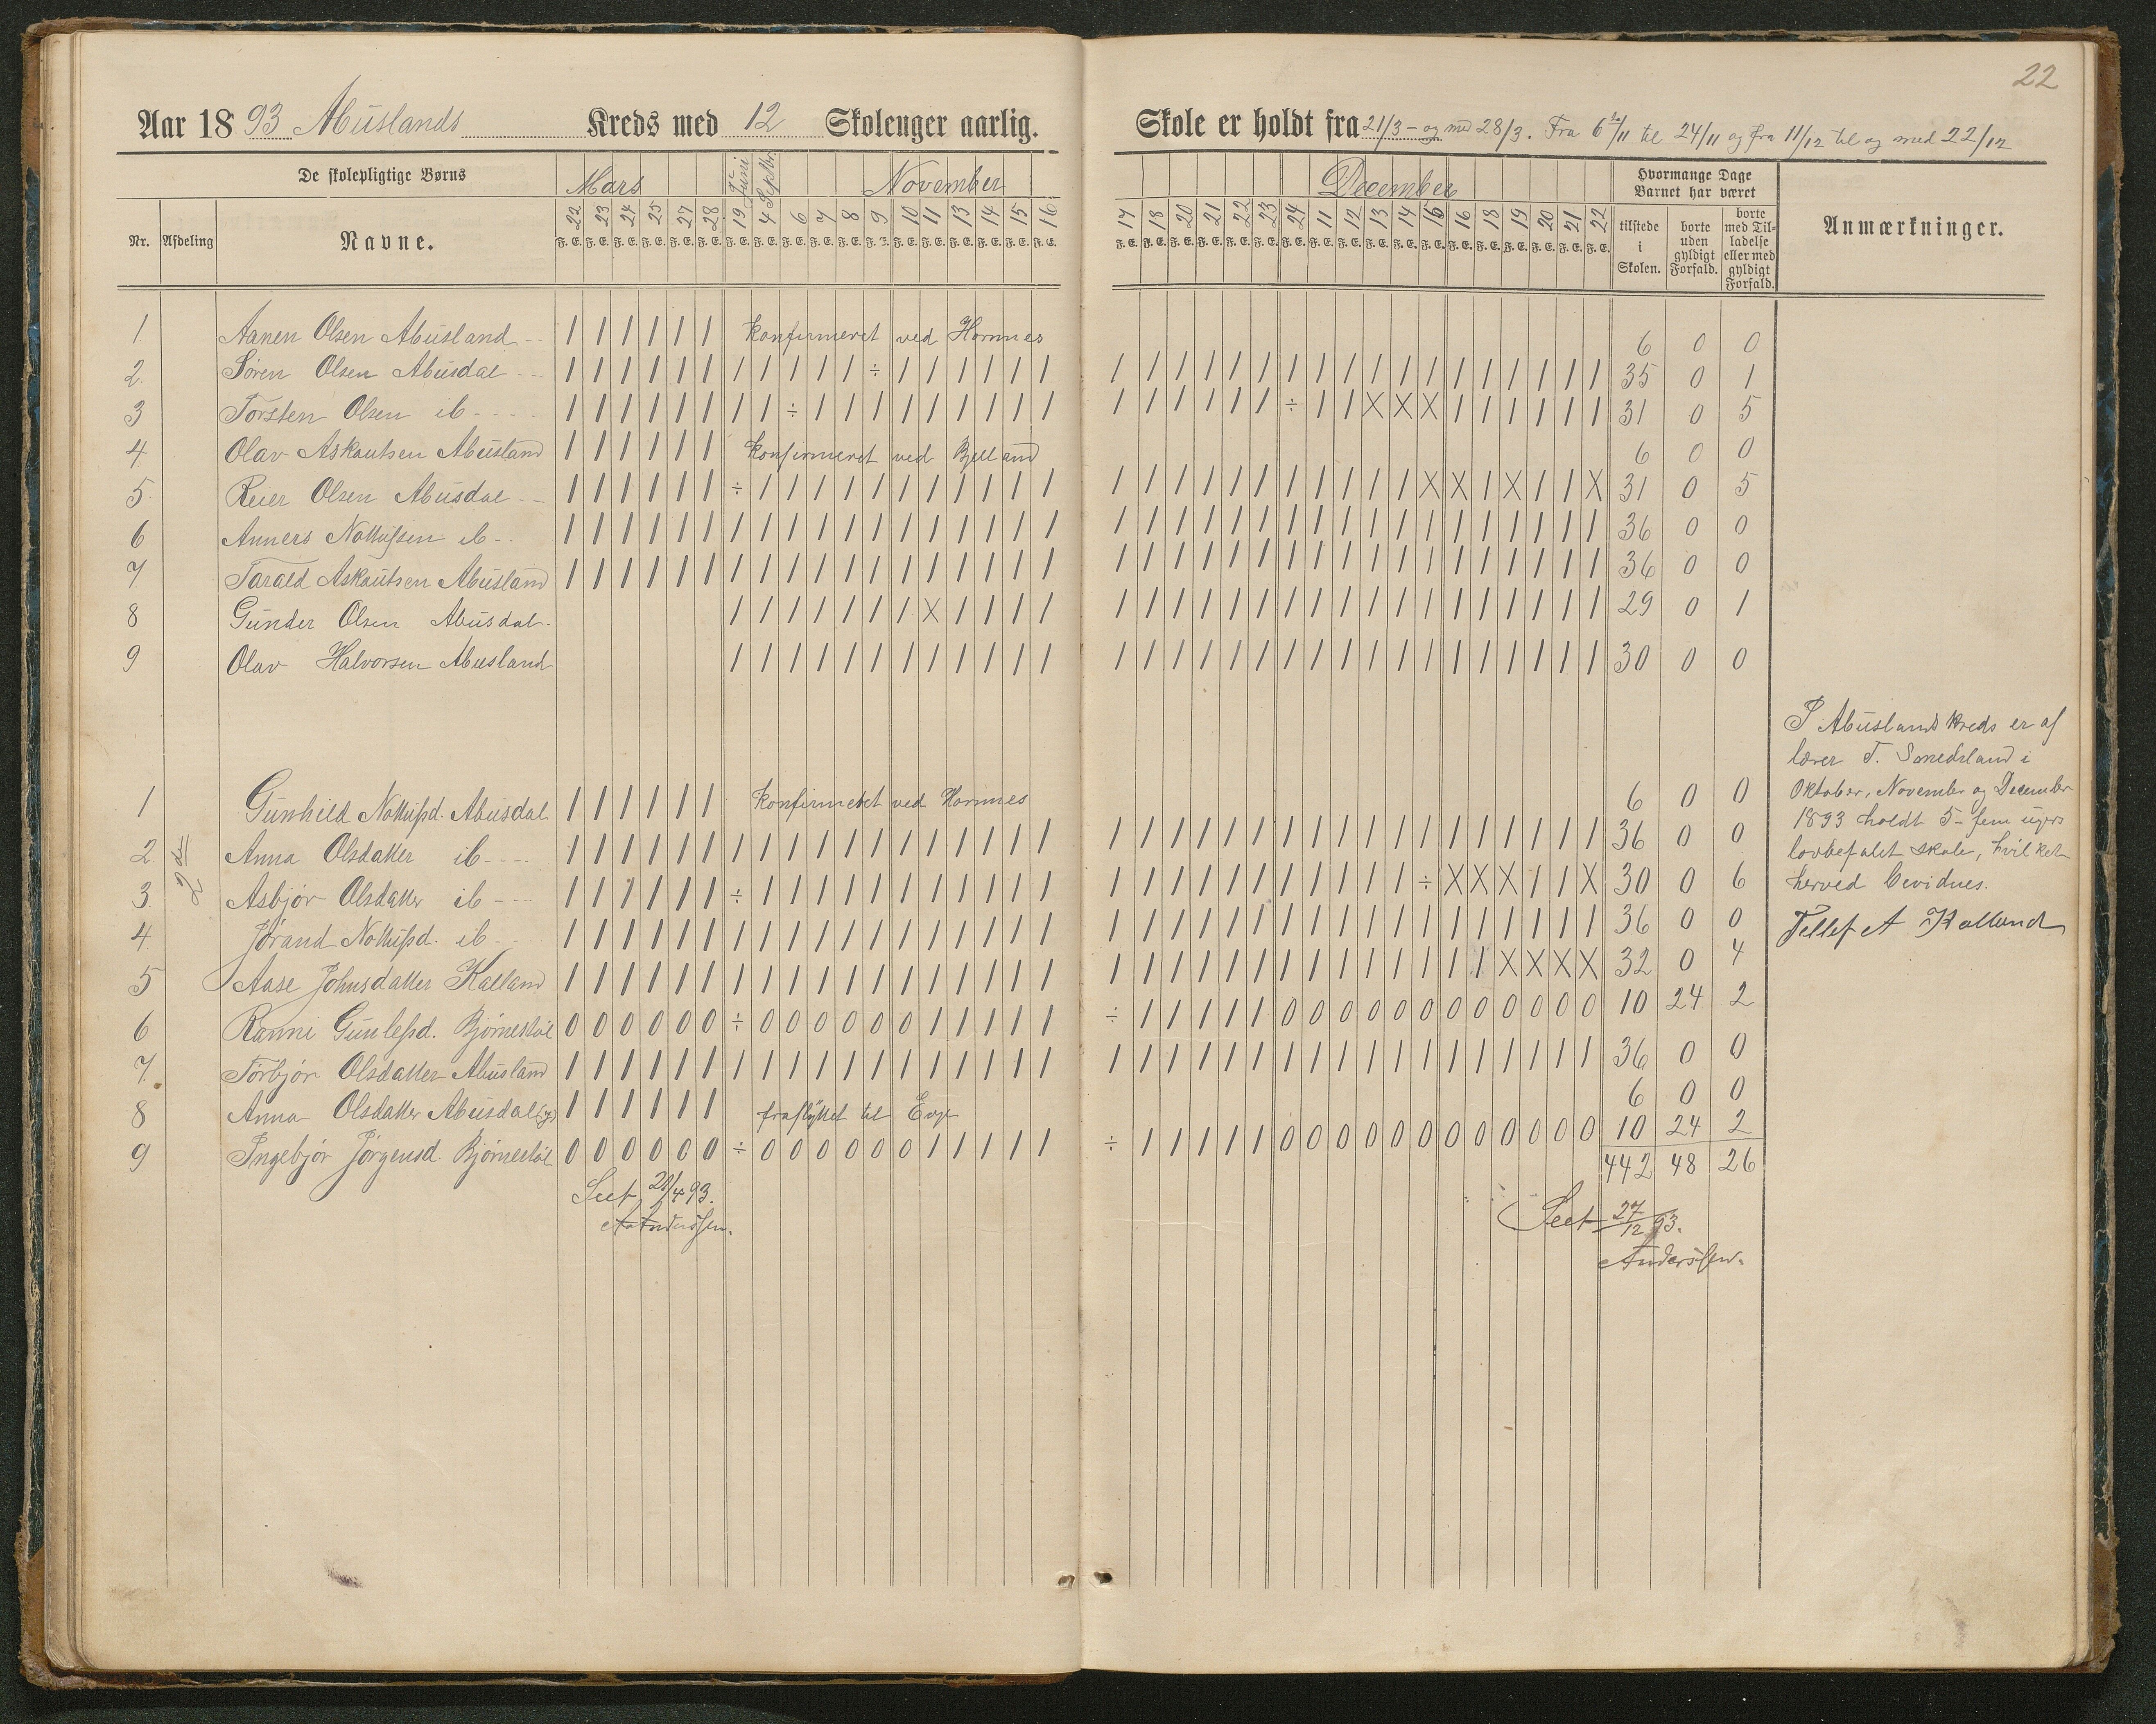 22
Aar 1893 Abuslands Kreds med 12 Skoleuger aarlig. Skole er holdt fra 21/3 - og med 28/3. Fra 6te/11 til 24/11 og fra 11/12 til og med 22/12
De skolepligtige Børns Mars Juni Septbr. November December Hvormange Dage Barnet har været Anmærkninger.
Nr. Afdeling Navne. 22 23 24 25 27 28 19 4 6 7 8 9 10 11 13 14 15 16 17 18 20 21 22 23 24 11 12 13 14 15 16 18 19 20 21 22 tilstede i Skolen. borte uden gyldigt Forfald. borte med Tilladelse eller med gyldigt Forfald.
F. E. F. E. F. E. F. E. F. E. F. E. F. E. F. E. F. E. F. E. F. E. F. E. F. E. F. E. F. E. F. E. F. E. F. E. F. E. F. E. F. E. F. E. F. E. F. E. F. E. F. E. F. E. F. E. F. E. F. E. F. E. F. E. F. E. F. E. F. E. F. E.
1. Aanen Olsen Abusland -- | | | | | | Konfirmeret ved Hornnes 6 0 0
2. Søren Olsen Abusdal --- | | | | | | | | | | | ÷ | | | | | | | | | | | | | | | | | | | | | | | | 35 0 1
3 Torsten Olsen ib ---- | | | | | | | | ÷ | | | | | | | | | | | | | | | ÷ | | X X X | | | | | | 31 0 5
4. Olav Askoutsen Abusland | | | | | | Konfirmeret ved Bjelland 6 0 0
5. Reier Olsen Abusdal -- | | | | | | ÷ | | | | | | | | | | | | | | | | | | | | | | X X | X | | X 31 0 5
6 Anners Nottulsen ib -- | | | | | | | | | | | | | | | | | | | | | | | | | | | | | | | | | | | | 36 0 0
7. Tarald Askoutsen Abusland | | | | | | | | | | | | | | | | | | | | | | | | | | | | | | | | | | | | 36 0 0
8 Gunder Olsen Abusdal - | | | | | | | X | | | | | | | | | | | | | | | | | | | | | | 29 0 1
9 Olav Halvorsen Abusland | | | | | | | | | | | | | | | | | | | | | | | | | | | | | | 30 0 0
I Abuslands kreds er af
lærer T. Smedsland i
Oktober, November og December
1893 holdt 5 - fem ugers
lovbefalet skole, hvilket
herved bevidnes.
Tellef A Kalland
2den
1 Gunhild Nottulsd. Abusdal | | | | | | Konfirmeret ved Hornnes 6 0 0
2 Anna Olsdatter ib ---- | | | | | | | | | | | | | | | | | | | | | | | | | | | | | | | | | | | | 36 0 0
3 Asbjør Olsdatter ib --- | | | | | | ÷ | | | | | | | | | | | | | | | | | | | | | | ÷ X X X | | X 30 0 6
4. Jørand Nottulsd. ib -- | | | | | | | | | | | | | | | | | | | | | | | | | | | | | | | | | | | | 36 0 0
5 Aase Johnsdatter Kalland | | | | | | | | | | | | | | | | | | | | | | | | | | | | | | | | X X X X 32 0 4
6 Ranni Gunlefsd. Bjørnestøl 0 0 0 0 0 0 ÷ 0 0 0 0 0 0 | | | | | ÷ | | | | | 0 0 0 0 0 0 0 0 0 0 0 0 10 24 2
7. Torbjør Olsdatter Abusland | | | | | | | | | | | | | | | | | | | | | | | | | | | | | | | | | | | | 36 0 0
8 Anna Olsdatter Abusdal | | | | | | fraflyttet til Evje 6 0 0
9 Ingebjør Jörgensd. Bjørnestøl 0 0 0 0 0 0 ÷ 0 0 0 0 0 0 | | | | | ÷ | | | | | 0 0 0 0 0 0 0 0 0 0 0 0 10 24 2
442 48 26
Seet 21/4 93.
A. Anderssen.
Seet 27/12 93.
Anderssen.